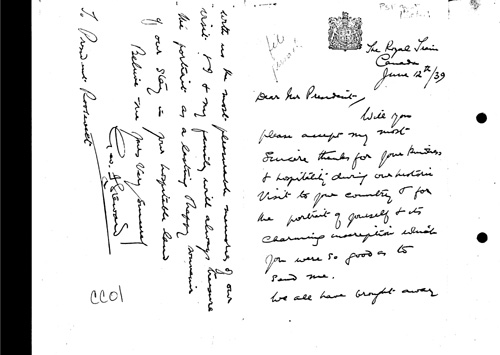 The Royal Train
Canada
June 12th/39
Dear Mr President,
Will you
please accept my most
sincere thanks for your kindness
& hospitality during our historic
visit to your country & for
the portrait of yourself & its
charming inscription which
you were so good as to
send me.
We all have brought away
with us the most pleasurable memories of our
visit & I & my family will always treasure
the portrait as a lasting & happy souvenir
of our stay in your hospitable land
Believe me yours very sincerely
Geo. F. Steward
To President Roosevelt
CC01